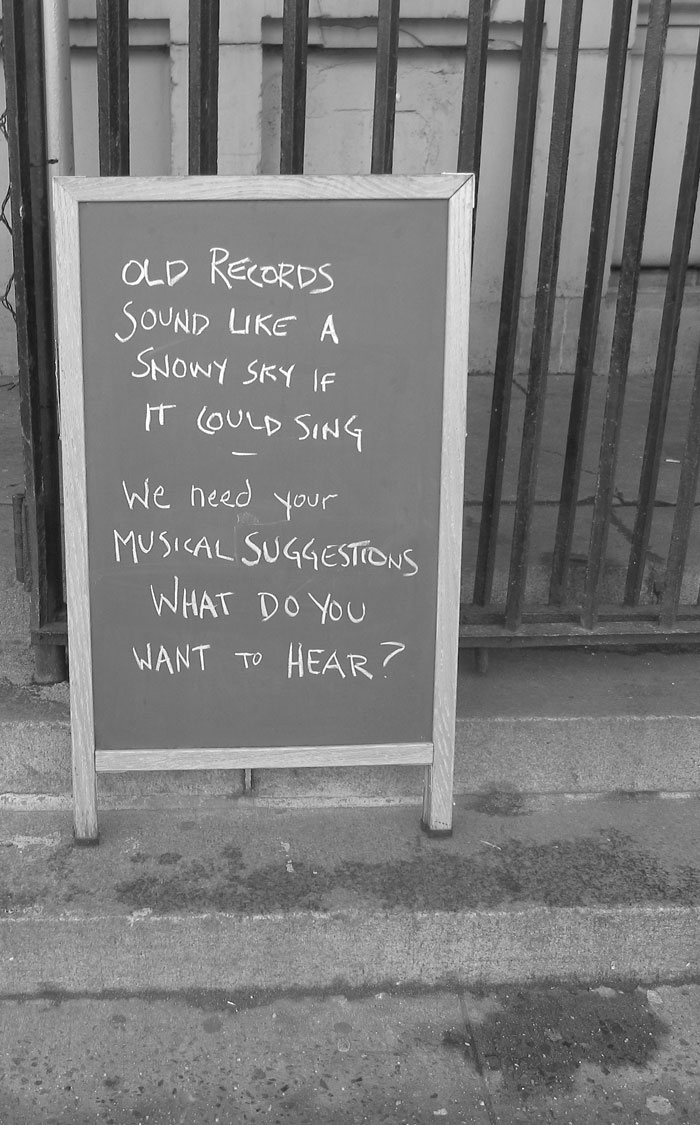 OLD RECORDS
SOUND LIKE A
SNOWY SKY IF
IT COULD SING
—
We need your
MUSICAL SUGGESTIONS
WHAT DO YOU
WANT TO HEAR?